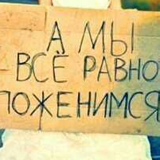 А МЫ
ВСЁ РАВНО
ПОЖЕНИМСЯ